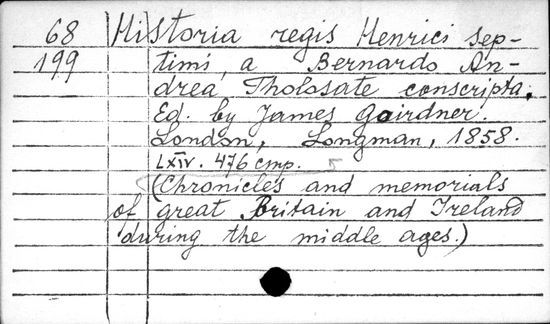 68 Historia regis Henrici sep-
199 timi, a Bernardo An-
drea Tholosate conscripta.
Ed. by James Gairdner.
London, Longman, 1858.
LXIV. 476 стр.
(Chronicles and memorials
of great Britain and Ireland
during the middle ages.)